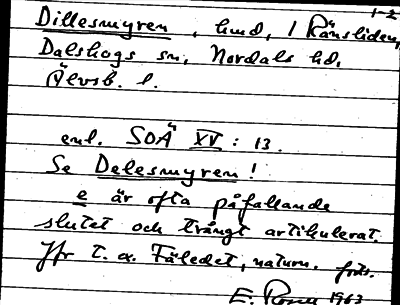 1-2
Dillesmyren, hmd, i Ränsliden,
Dalskogs sn, Nordals hd,
Älvsb. l.
enl. SOÄ XV : 13.
Se Delesmyren!
e är ofta påfallande
slutet och trångt artikulerat.
Jfr t. ex. Fäledet, naturn. forts.
E. 1963